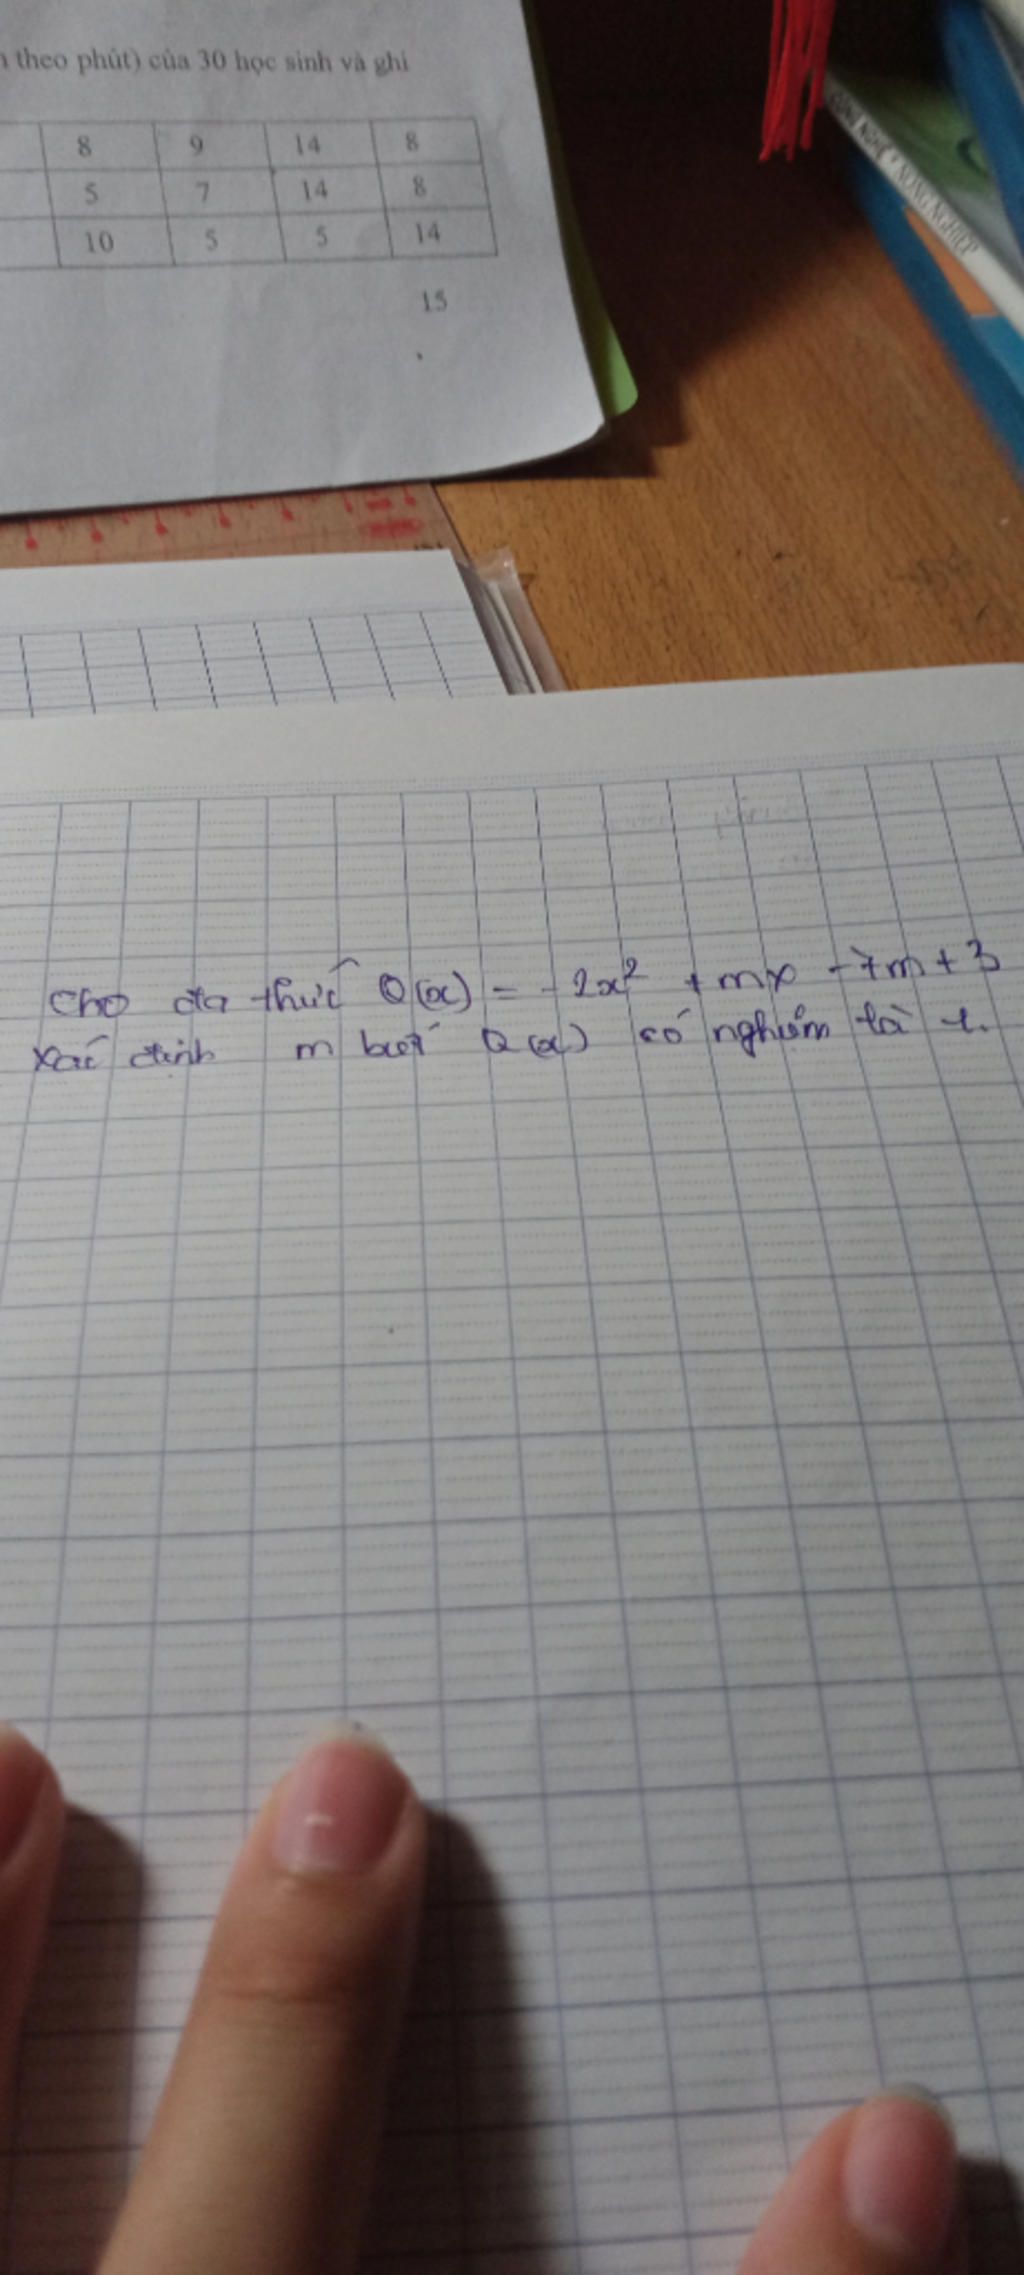 theo phút) của 30 học sinh và ghi
8 9 14 8
5 7 14 8
10 5 5 14
15
CÔNG NGHỆ * SONG NGHIỆP
Cho đa thức Q(x) = -2x² + mx -7m + 3
Xác định m biết Q(x) có nghiệm là -1.